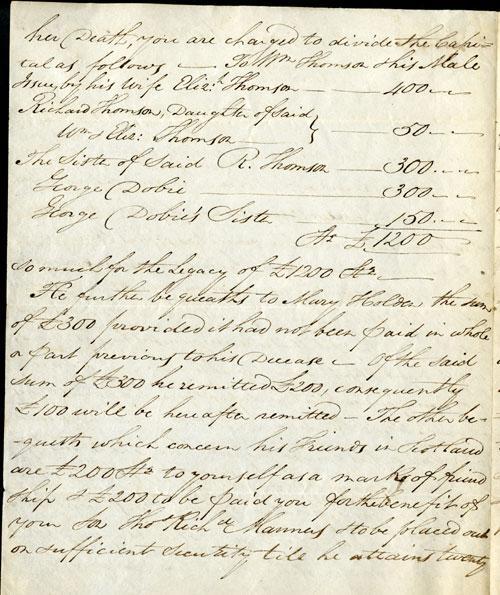 her Death, you are charged to divide the Capi-
tal as follows — To Wm Thomson & his Male
Issue, by his Wife Eliz.t Thomson — 400..—
Richard Thomson, Daughter of Said
Wm & Eliz: Thomson — } 50..—
The Sister of Said R. Thomson — 300..—
George Dobie — 300..—
George Dobie's Sister — 150..—
£ 1200
so much for the Legacy of £1200
He further bequeaths to Mary Holden the sum
of £300 provided it had not been paid in whole
or part previous to his Decease — Of the said
sum of £300 he remitted £200, consequently
£100 will be hereafter remitted — The other be-
-quests which concern his Friends in Scotland
are £200 to yourself as a mark of friend
ship & £200 to be paid you for the benefit of
your Son Tho.s Rich.d Manners to be placed out
on sufficient Security till he attains twenty